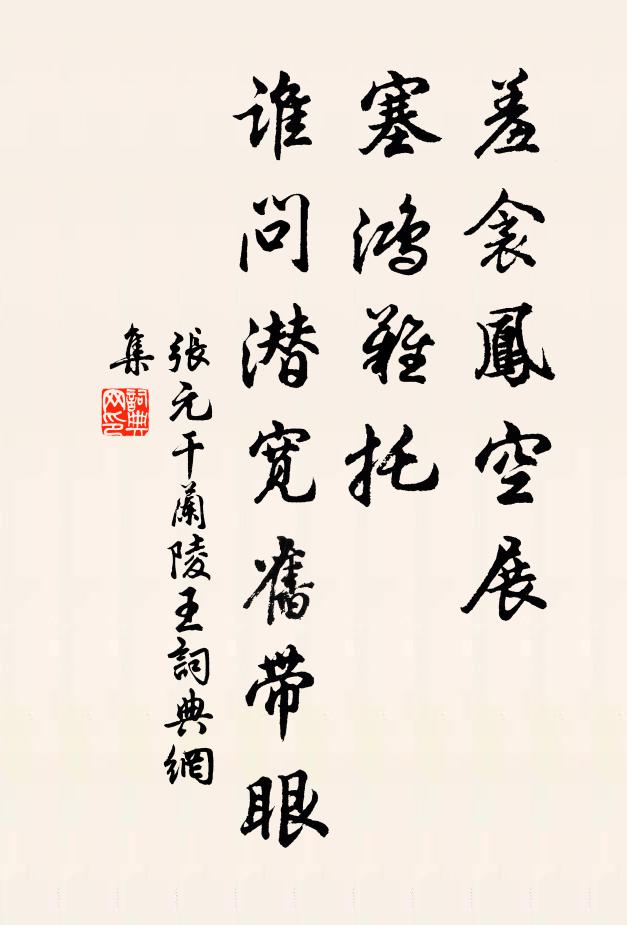 羞衾鳳空展
塞鴻難托
誰問潛寬舊帶眼
張元干蘭陵王詞典網
集
詞典
网印